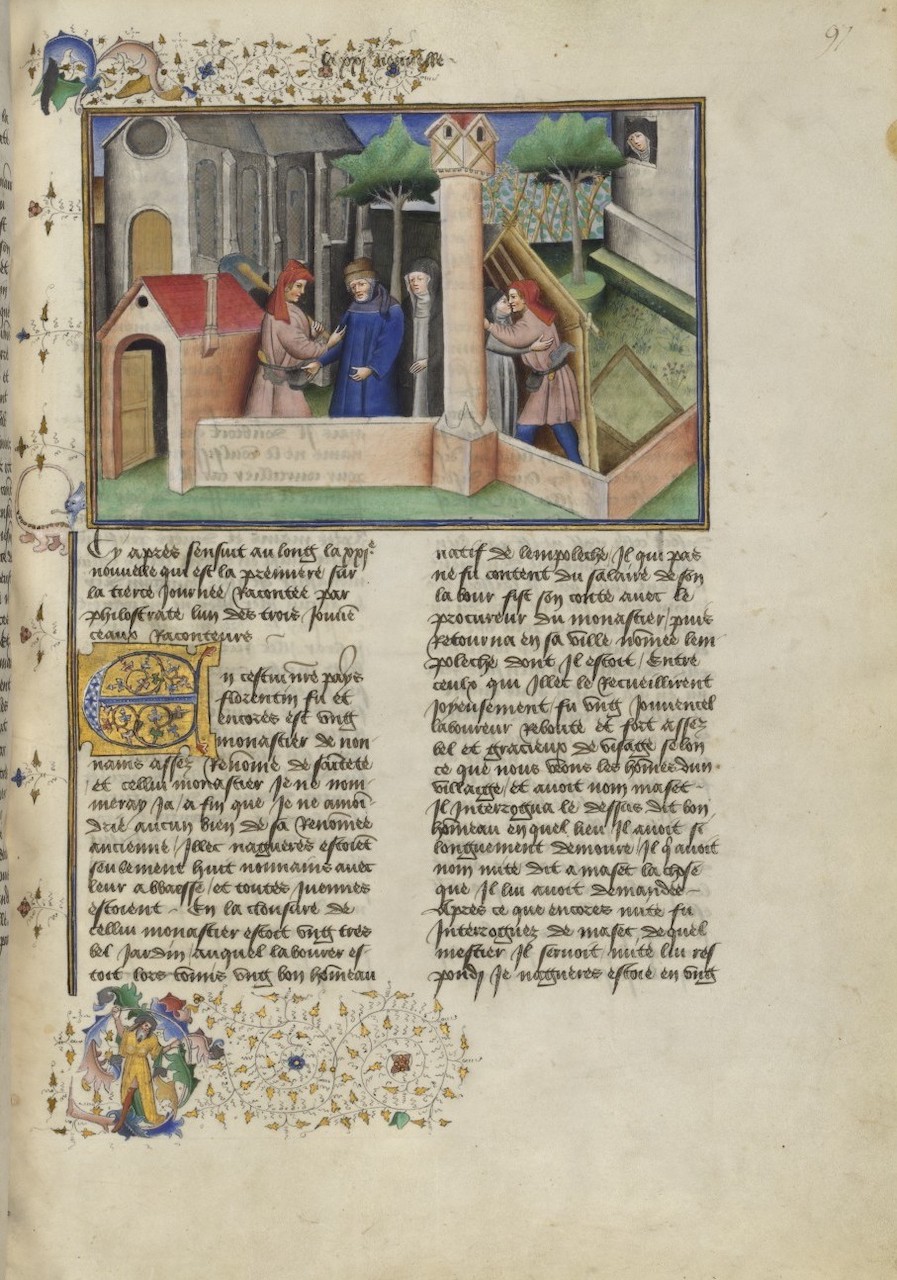 97
la xxi.e nouuelle
Cy apres sensuit au long la xxi.e
nouuelle qui est la premiere sur
la tierce Journee Racontee par
philostrate lun des trois Jouuen
ceaulx Raconteurs
En cestui nrẽ pays
florentin fu et
encores est vng
monastier de non
nains assez Renome de saictete
et cellui monastier Je ne nom
meray Ja a fin que Je ne amoi
drie aucun bien de sa Renomee
ancienne / Illec nagueres estoiẽt
seulement huit nonnains auec
leur abbaesse / et toutes Juennes
estoient - En la closture de
cellui monastier estoit vng tres
bel Jardin / auquel labourer es
toit lors commis vng bon homeau
natif de lempoleche Il qui pas
ne fu content du salaire de son
labour fist son conte auec le
procureur du monastier / puis
Retourna en sa ville nomee lem
poleche dont Il estoit / Entre
ceulx qui Illec le Recueillirent
Joyeusement fu vng Jouuencel
laboureur Reboute et fort assez
bel et gracieux de visaige selon
ce que nous veons les homes dun
villaige / et auoit nom maset -
Il Interrogua le dessus dit bon
homeau en quel lieu Il auoit si
longuement demoure / Il q̃ auoit
nom nute dit a maset la chose
que Il lui auoit demandee -
Apres ce que encores nute fu
Interroguez de maset de quel
mestier Il seruoit nute lui res
pondi Je nagueres estoie en vng